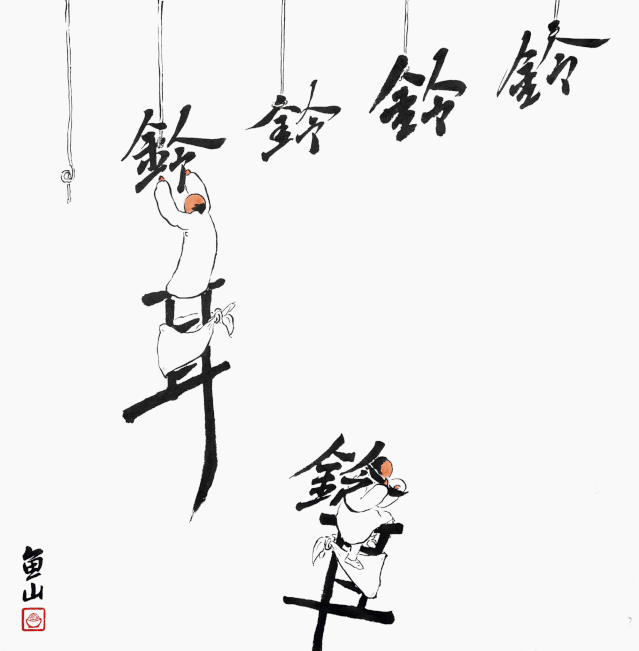 鈴 鈴 鈴 鈴
耳
鈴
耳
鱼山